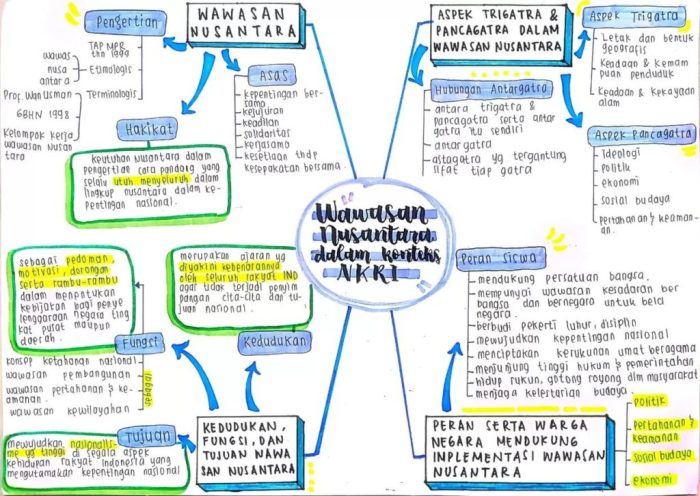 WAWASAN
NUSANTARA
Pengertian
TAP MPR
thn 1999
wawas
nusa
antara
Etimologis
Prof. Wan Usman
GBHN 1998
Kelompok kerja
wawasan Nusan
tara
Terminologis
Asas
kepentingan ber-
sama
kejujuran
keadilan
solidaritas
kerjasama
kesetiaan thdp
kesepakatan bersama.
Hakikat
keutuhan Nusantara dalam
pengertian cara pandang yang
selalu utuh menyeluruh dalam
lingkup nusantara dalam ke-
pentingan nasional.
ASPEK TRIGATRA &
PANCAGATRA DALAM
WAWASAN NUSANTARA
Aspek Trigatra
Letak dan bentuk
geografis
Keadaan & Kemam
puan penduduk
Keadaan & kekayaan
alam
Hubungan Antargatra
antara trigatra &
pancagatra serta antar
gatra itu sendiri
antar gatra
astagatra yg tergantung
sifat tiap gatra
Aspek Pancagatra
ideologi
politik
ekonomi
sosial budaya
pertahanan & keaman-
an.
"Wawasan
Nusantara
dalam konteks
NKRI"
sebagai pedoman,
motivasi, dorongan
serta rambu-rambu
dalam menentukan
kebijakan bagi penye
lenggaraan negara ting
kat pusat maupun
daerah.
Fungsi
konsep ketahanan nasional
wawasan pembangunan
wawasan pertahanan & ke-
amanan.
wawasan kewilayahan
sebagai
merupakan ajaran yg
diyakini kebenarannya
oleh seluruh rakyat IND
agar tidak terjadi penyim
pangan cita-cita dan tu-
juan nasional.
Kedudukan
Tujuan
mewujudkan nasionalis-
me yg tinggi di segala aspek
kehidupan rakyat Indonesia yang
mengutamakan kepentingan nasional
KEDUDUKAN,
FUNGSI, DAN
TUJUAN WAWA
SAN NUSANTARA
Peran Siswa
mendukung persatuan bangsa.
mempunyai wawasan kesadaran ber
bangsa dan bernegara untuk bela
negara.
berbudi pekerti luhur, disiplin
mewujudkan kepentingan nasional
menciptakan kerukunan umat beragama
menjunjung tinggi hukum & pemerintahan
hidup rukun, gotong royong dlm masyarakat
menjaga kelestarian budaya.
PERAN SERTA WARGA
NEGARA MENDUKUNG
IMPLEMENTASI WAWASAN
NUSANTARA
politik
pertahanan &
keamanan
sosial budaya
ekonomi